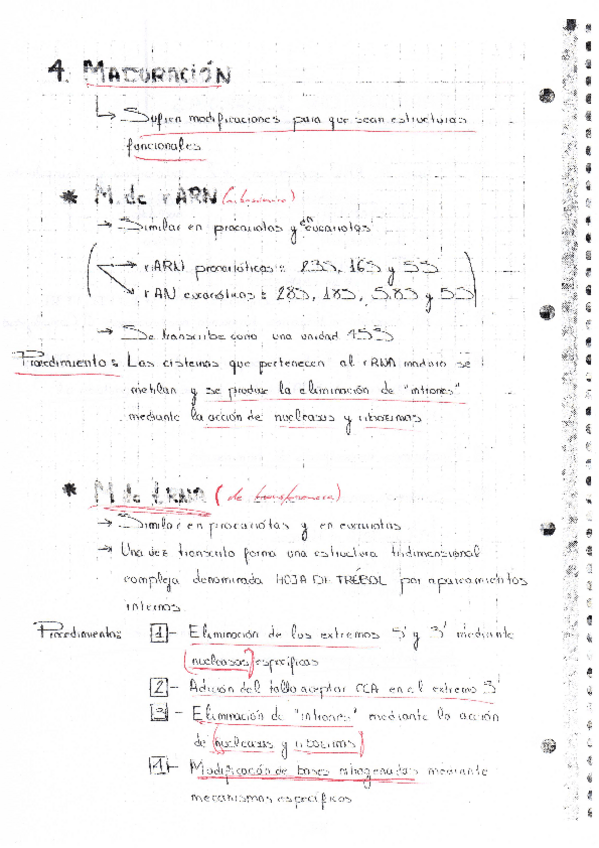 4. MADURACIÓN
Sufren modificaciones para que sean estructuras
funcionales
* M. de rARN (ribosómico)
→ Similar en procariotas y en eucariotas
rARN procarióticas: 23S, 16S y 5S
rAN eucarióticas: 28S, 18S, 5,8S y 5S
→ Se transcribe como una unidad 45S
Procedimiento: Las cisteínas que pertenecen al rRNA maduro se
metilan y se produce la eliminación de "intrones"
mediante la acción de nucleasas y ribozimas
* M de tRNA (de transferencia)
→ Similar en procariotas y en eucariotas
→ Una vez transcrito forma una estructura tridimensional
compleja denominada HOJA DE TRÉBOL por apareamientos
internos.
Procedimientos: 1- Eliminación de los extremos 5' y 3' mediante
nucleasas específicas
2- Adición del tallo aceptor CCA en el extremo 3'
3- Eliminación de "intrones" mediante la acción
de nucleasas y ribozimas
4- Modificación de bases nitrogenadas mediante
mecanismos específicos